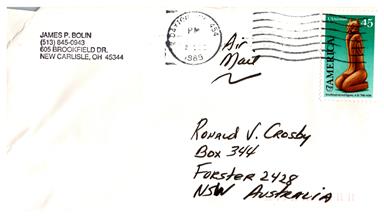 JAMES P. BOLIN
(513) 845-0943
605 BROOKFIELD DR.
NEW CARLISLE, OH 45344
DAYTON, OH 454
PM
1989
Air
Mail
USA
45
AMERICA
RONALD V. CROSBY
BOX 344
FORSTER 2428
NSW AUSTRALIA